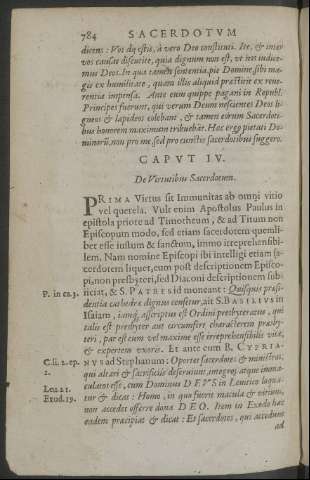 784 SACERDOTVM
dicens: Vos dij estis, à vero Deo constituti. Ite, & inter
vos causas discutite, quia dignum non est, vt nos iudice-
mus Deos. In qua tamen sententia, pie Domine, sibi ma-
gis ex humilitate, quam illis aliquid præstitit ex reue-
rentia impensa. Ante eum quippe pagani in Republ.
Principes fuerunt, qui verum Deum nescientes Deos li-
gneos & lapideos colebant, & tamen eorum Sacerdoti-
bus honorem maximum tribuebãt. Hac ergo pietati Do-
minorũ, non pro me, sed pro cunctis sacerdotibus suggero.
CAPVT IV.
De Virtutibus Sacerdotum.
PRIMA Virtus sit Immunitas ab omni vitio
vel querela. Vult enim Apostolus Paulus in
epistola priore ad Timotheum, & ad Titum non
Episcopum modo, sed etiam sacerdotem quemli-
bet esse iustum & sanctum, immo irreprehensibi-
lem. Nam nomine Episcopi ibi intelligi etiam sa-
cerdotem liquet, cum post descriptionem Episco-
pi, non presbyteri, sed Diaconi descriptionem sub-
P. in ca. 3. iiciat, & S. PATRES id monent: Quisquis præsi-
dentia cathedræ dignus censetur, ait S. BASILIVS in
Isaiam, iamq́, asscriptus est Ordini presbyteratus, qui
talis est presbyter aut circumfert characterem presby-
teri, par est eum vel maxime esse irreprehensibilis vitæ,
& expertem exoris. Et ante eum B. CYPRIA-
C. li. 2. ep. NVS ad Stephanum: Oportet sacerdotes & ministros,
2.
qui altari & sacrificiis deseruiunt, integros atque imma-
culatos esse, cum Dominus DEVS in Leuitico loqua-
Leu. 21. tur & dicat: Homo, in quo fuerit macula & vitium,
Exod. 19. non accedet offerre dona DEO. Item in Exodo hæc
eadem præcipiat & dicat: Et sacerdotes, qui accedunt
ad